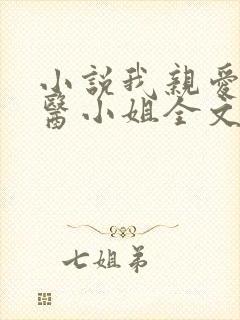 小説我親愛
醫小姐全文
七姐弟